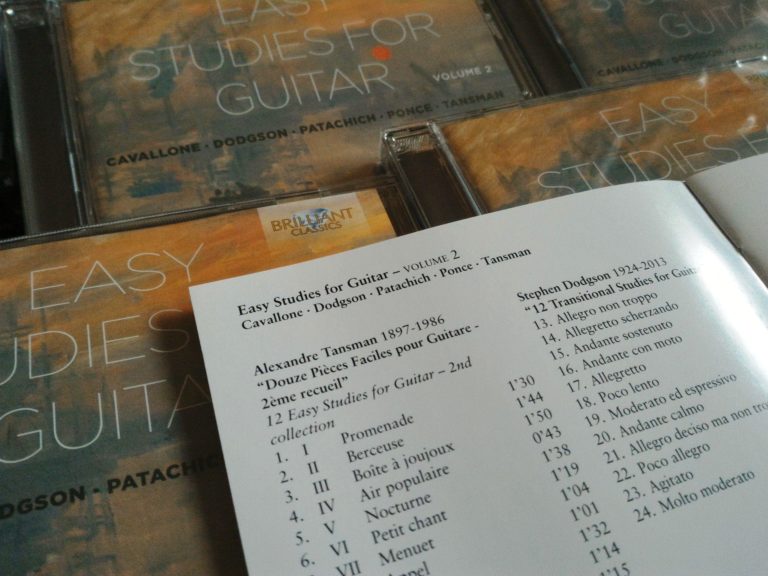 EASY
STUDIES FOR
GUITAR
VOLUME 2
CAVALLONE · DODGSON · PATACHICH · PONCE · TANSMAN
CAVALLONE · DODGSON ·
EASY
STUDIES FOR
BRILLIANT
CLASSICS
EASY
UDIES
GUITA
DGSON · PATACHIC
Easy Studies for Guitar – VOLUME 2
Cavallone · Dodgson · Patachich · Ponce · Tansman
Alexandre Tansman 1897-1986
"Douze Pièces Faciles pour Guitare -
2ème recueil"
12 Easy Studies for Guitar – 2nd
collection
1. I Promenade 1'30
2. II Berceuse 1'44
3. III Boîte à joujoux 1'50
4. IV Air populaire 0'43
5. V Nocturne 1'38
6. VI Petit chant 1'19
VII Menuet 1'04
1'01
1'32
1'14
1'15
Stephen Dodgson 1924-2013
"12 Transitional Studies for Guitar
13. Allegro non troppo
14. Allegretto scherzando
15. Andante sostenuto
16. Andante con moto
17. Allegretto
18. Poco lento
19. Moderato ed espressivo
20. Andante calmo
21. Allegro deciso ma non tro
22. Poco allegro
23. Agitato
24. Molto moderato